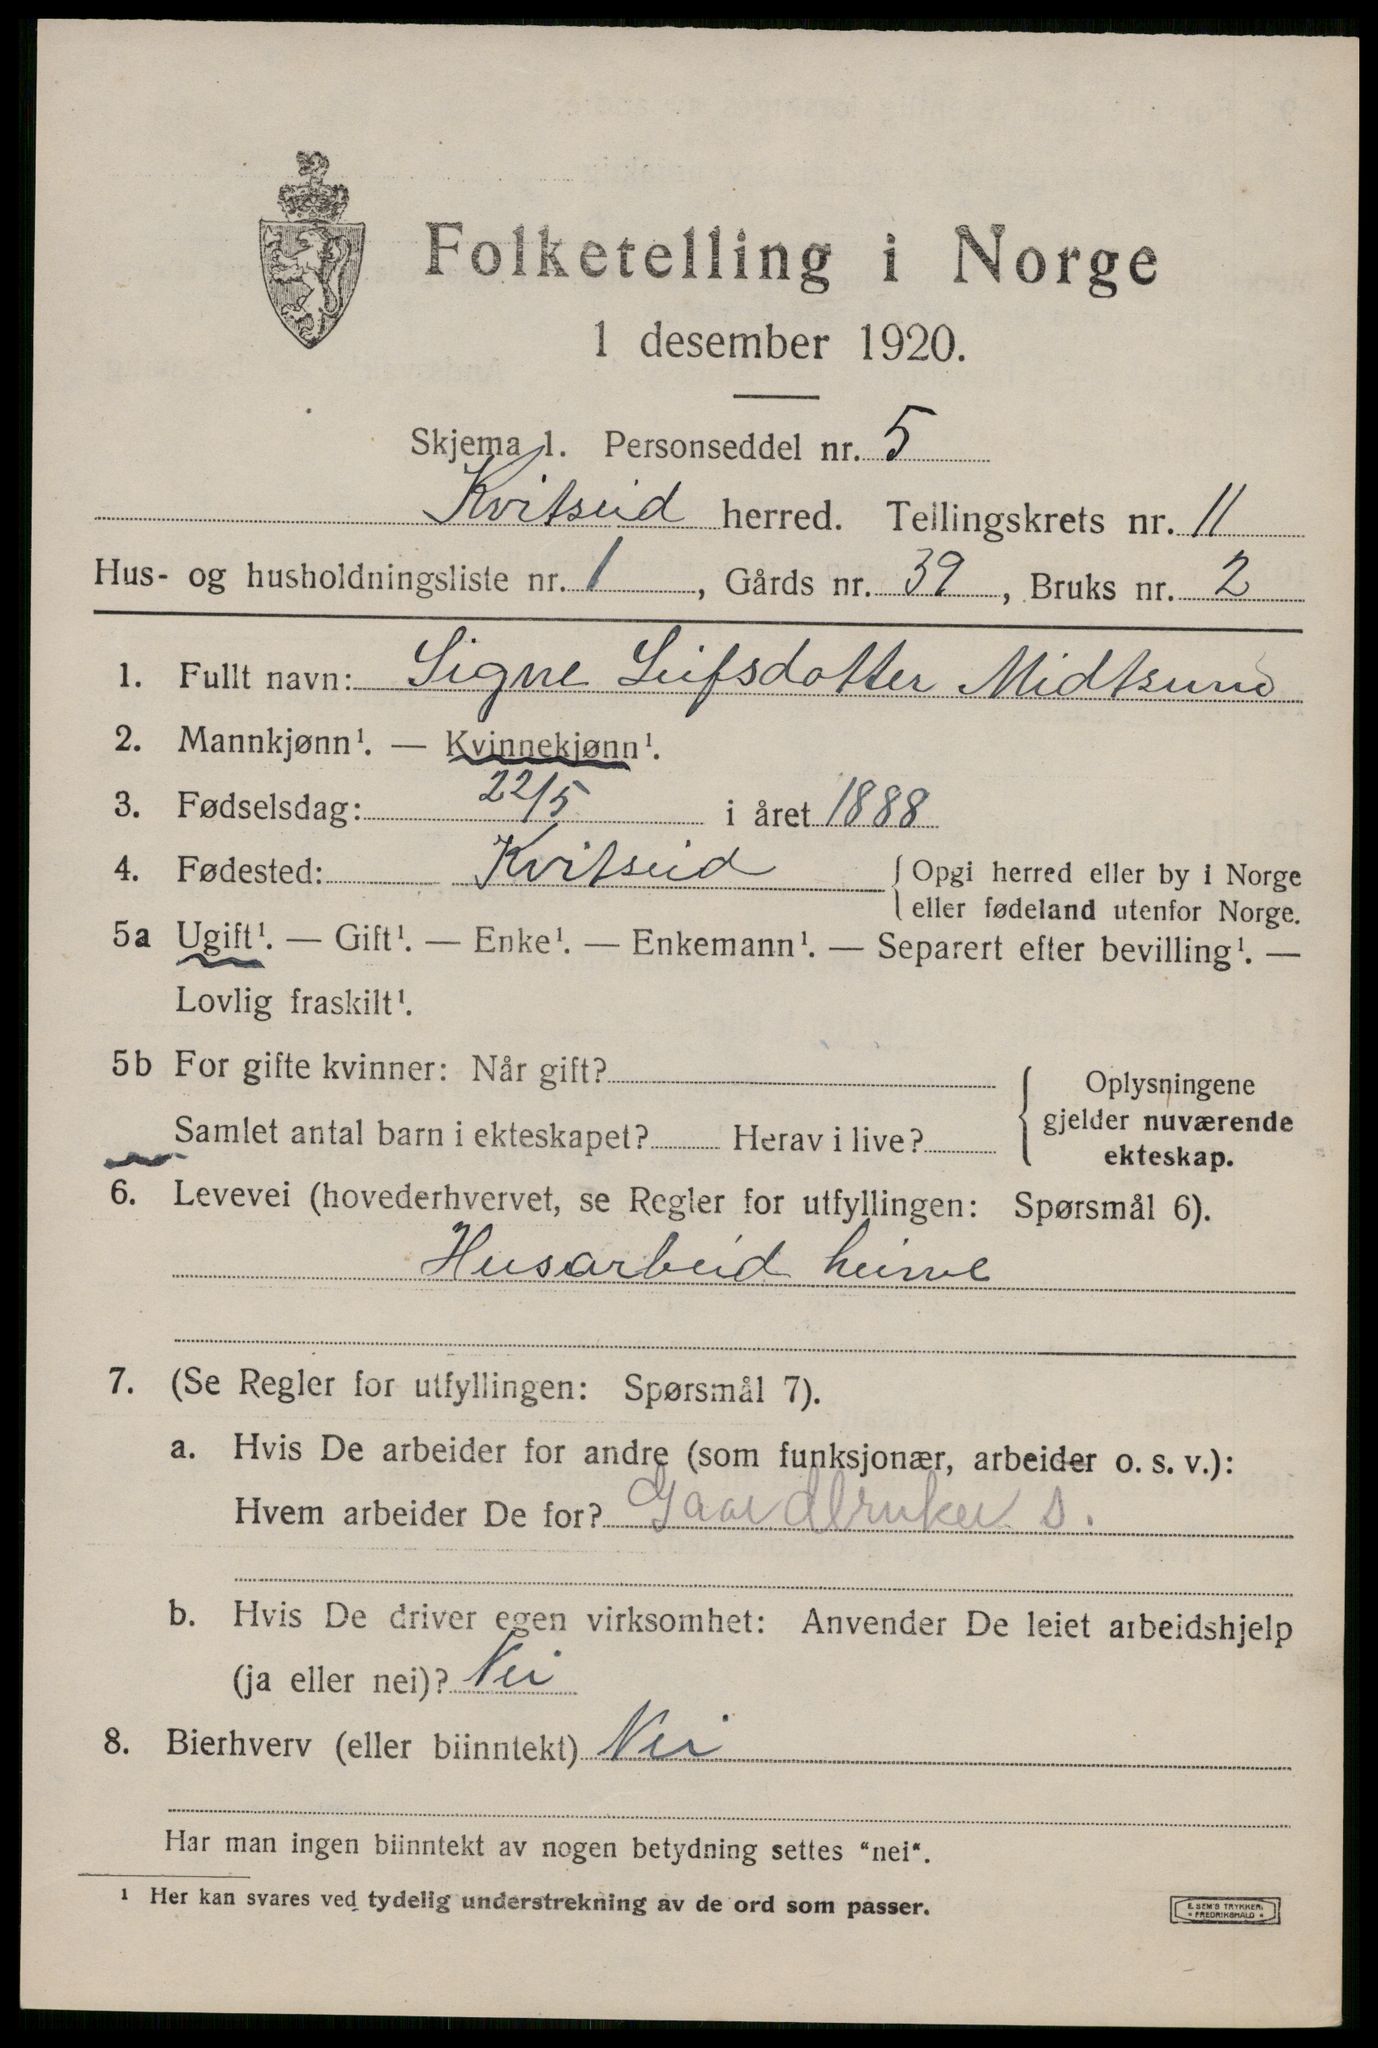 Folketelling i Norge
1 desember 1920.
Skjema 1. Personseddel nr. 5
Kvitseid herred. Tellingskrets nr. 11
Hus- og husholdningsliste nr. 1, Gårds nr. 39, Bruks nr. 2
1. Fullt navn: Signe Leifsdotter Midtsund
2. Mannkjønn¹. — Kvinnekjønn¹.
3. Fødselsdag: 22/5 i året 1888
4. Fødested: Kvitseid { Opgi herred eller by i Norge
eller fødeland utenfor Norge.
5a Ugift¹. — Gift¹. — Enke¹. — Enkemann¹. — Separert efter bevilling¹. —
Lovlig fraskilt¹.
5b For gifte kvinner: Når gift?
Samlet antal barn i ekteskapet? Herav i live?
{ Oplysningene
gjelder nuværende
ekteskap.
6. Levevei (hovederhvervet, se Regler for utfyllingen: Spørsmål 6).
Husarbeid heime
7. (Se Regler for utfyllingen: Spørsmål 7).
a. Hvis De arbeider for andre (som funksjonær, arbeider o. s. v.):
Hvem arbeider De for? Gaardbruker s.
b. Hvis De driver egen virksomhet: Anvender De leiet arbeidshjelp
(ja eller nei)? Nei
8. Bierhverv (eller biinntekt) Nei
Har man ingen biinntekt av nogen betydning settes "nei".
¹ Her kan svares ved tydelig understrekning av de ord som passer.
E. SEM'S TRYKKERI
* FREDRIKSHALD *